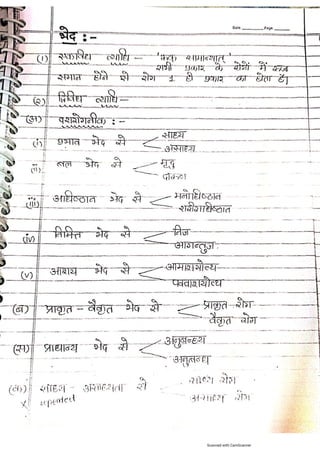 Date Page
भेद : -
(1) एकविध व्याधि - 'रुक् सामान्यात्'
सभी प्रकार के रोगों में रुजा
समान होने से रोग 1 ही प्रकार का होता है।
(२) द्विविध व्याधि -
(अ) चरकोक्त : -
(i) प्रभाव भेद से साध्य
असाध्य
(ii) बल भेद से मृदु
दारुण
(iii) अधिष्ठान भेद से मनोधिष्ठान
शरीराधिष्ठान
(iv) निमित्त भेद से निज
आगन्तुज
(v) आशय भेद से आमाशयोत्थ
पक्वाशयोत्थ
(ब) प्राकृत - वैकृत भेद से प्राकृत रोग
वैकृत रोग
(स) प्राधान्य भेद से अनुबन्ध्य
अनुबन्ध
साध्य - असाध्यता से साध्य रोग
repeated असाध्य रोग
Scanned with CamScanner